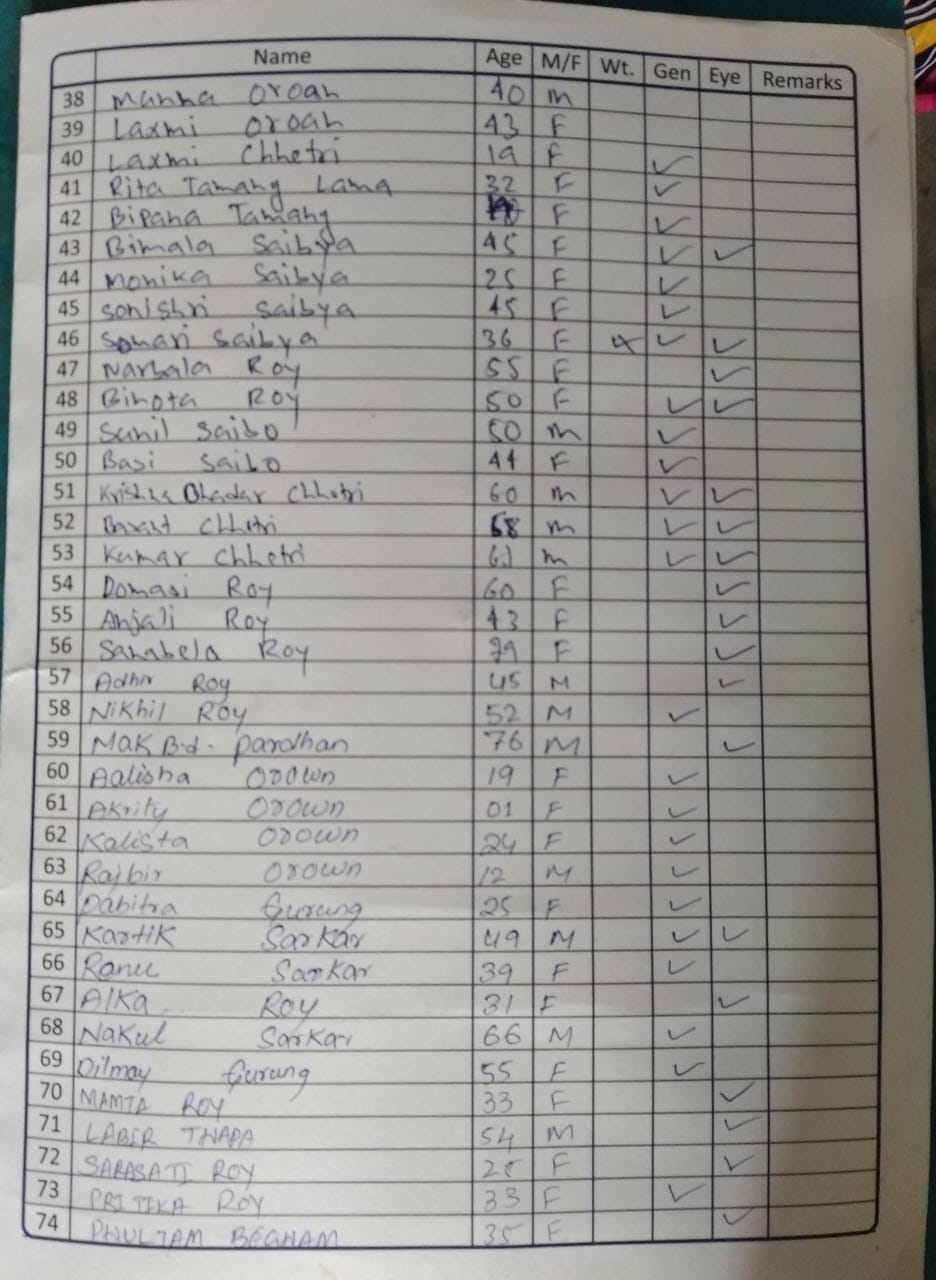 Name Age M/F Wt. Gen Eye Remarks
38 Manna Oroan 40 m
39 Laxmi Oroan 43 F
40 Laxmi Chhetri 19 F ✓
41 Rita Tamang Lama 32 F ✓
42 Bipana Tamang F ✓
43 Bimala Saibya 45 F ✓ ✓
44 Monika Saibya 25 F ✓
45 Sonishri Saibya 45 F ✓
46 Somari Saibya 36 F ✓ ✓
47 Narbala Roy 55 F ✓
48 Binota Roy 50 F ✓ ✓
49 Sunil Saibo 50 m ✓
50 Basi Saibo 44 F ✓
51 Krishna Bhadar Chhetri 60 m ✓ ✓
52 Chhetri 68 m ✓ ✓
53 Kumar Chhetri m ✓ ✓
54 Domasi Roy 60 F ✓
55 Anjali Roy 43 F ✓
56 Sanabela Roy 79 F ✓
57 Adhir Roy 45 M ✓
58 Nikhil Roy 52 M ✓
59 Mak Bd. pardhan 76 M ✓
60 Aalisha Orown 19 F ✓
61 Akrity Orown 01 F ✓
62 Kalista Orown 24 F ✓
63 Rajbir Orown 12 M ✓
64 Pabitra Gurung 25 F ✓
65 Kartik Sarkar 49 M ✓ ✓
66 Ranu Sarkar 39 F ✓
67 Alka Roy 31 F ✓
68 Nakul Sarkar 66 M ✓
69 Dilmay Gurung 55 F ✓
70 MAMTA ROY 33 F ✓
71 LABIR THAPA 54 M ✓
72 SARASATI ROY F ✓
73 PRITIKA ROY 33 F ✓
74 PHULJAM BEGHAM 35 F ✓